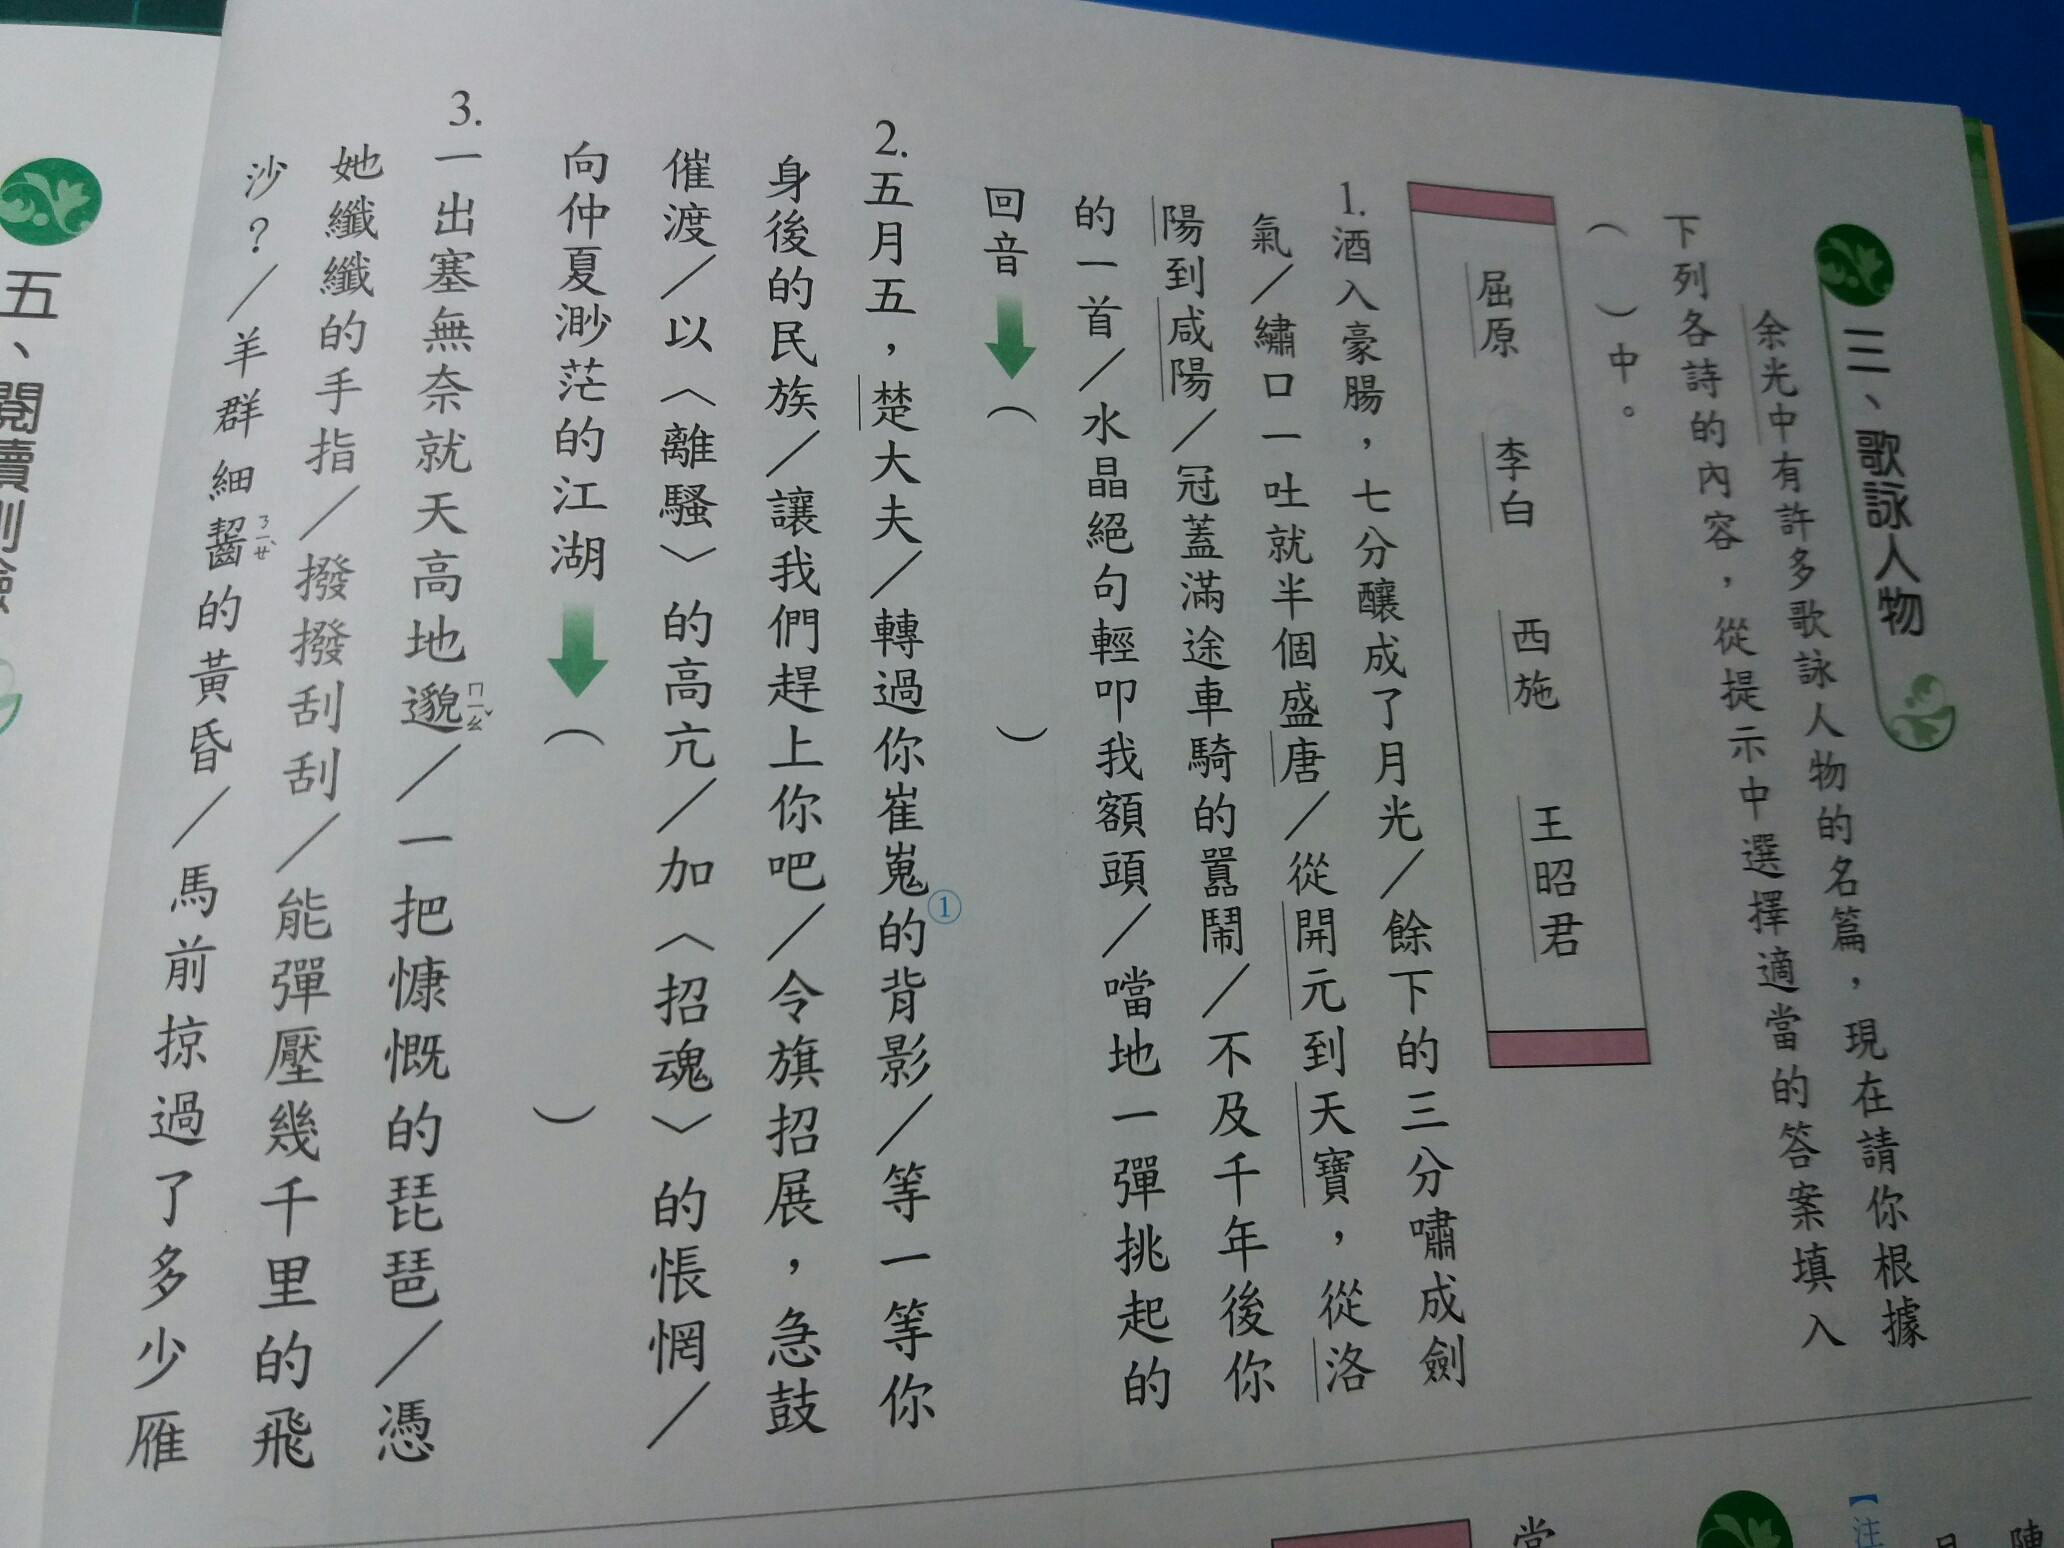 三、歌詠人物
余光中有許多歌詠人物的名篇，現在請你根據
下列各詩的內容，從提示中選擇適當的答案填入
（　）中。
屈原　李白　西施　王昭君
1.酒入豪腸，七分釀成了月光／餘下的三分嘯成劍
氣／繡口一吐就半個盛唐／從開元到天寶，從洛
陽到咸陽／冠蓋滿途車騎的囂鬧／不及千年後你
的一首／水晶絕句輕叩我額頭／噹地一彈挑起的
回音（　）
2.五月五，楚大夫／轉過你崔嵬①的背影／等一等你
身後的民族／讓我們趕上你吧／令旗招展，急鼓
催渡／以〈離騷〉的高亢／加〈招魂〉的悵惘／
向仲夏渺茫的江湖（　）
3.一出塞無奈就天高地邈ㄇㄧㄠˇ／一把慷慨的琵琶／憑
她纖纖的手指／撥撥刮刮／能彈壓幾千里的飛
沙？／羊群細齧ㄋㄧㄝˋ的黃昏／馬前掠過了多少雁
五、閱讀測驗
【注
陳